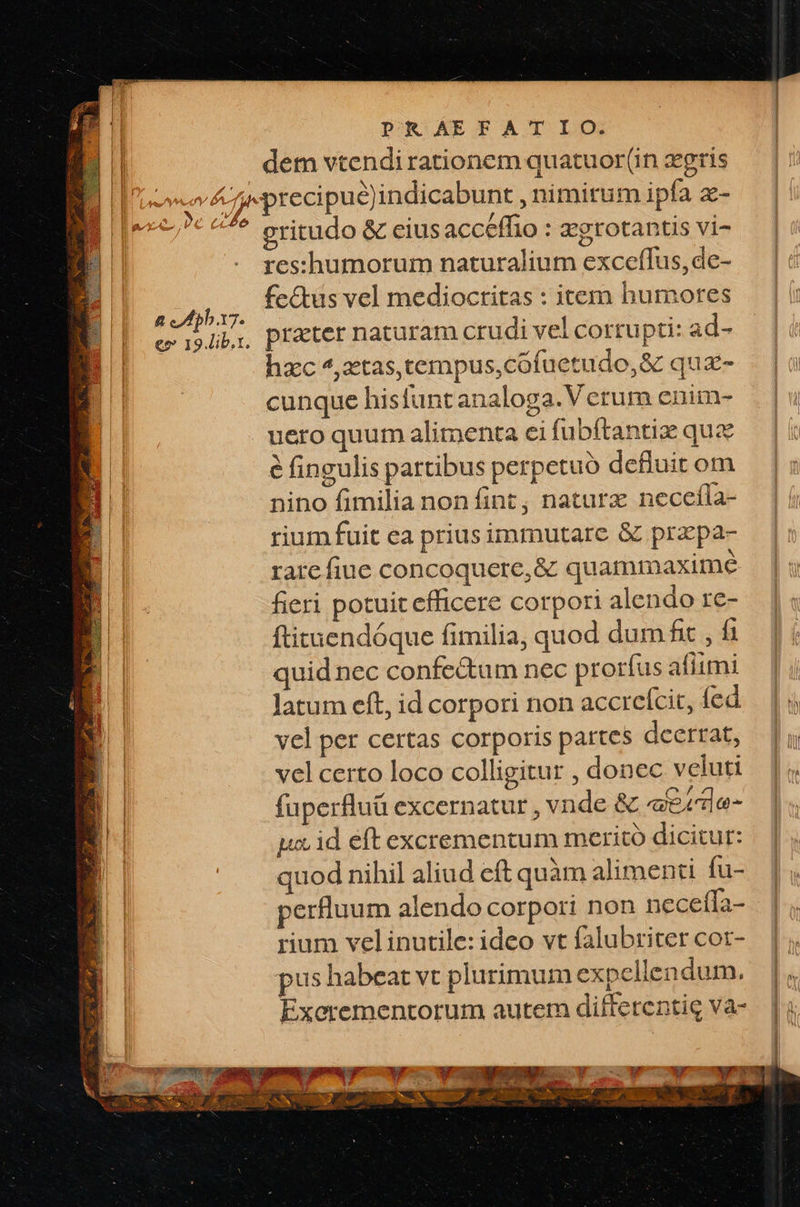 PRAEFATIO.
dem vtendi rationem quatuor(in ægris
precipuè)indicabunt , nimirum ipſa æ-
gritudo & eius accéſſio : ægrotantis vi-
res:humorum naturalium exceſſus, de-
fectus vel mediocritas : item humores
a Aph.17.
& 19.lib.1.
præter naturam crudi vel corrupti: ad-
hæc ª,ætas,tempus,cõſuetudo,& quæ-
cunque his ſunt analoga. Verum enim-
uero quum alimenta ei ſubſtantiæ quæ
è ſingulis partibus perpetuò defluit om
nino ſimilia non ſint, naturæ neceſſa-
rium fuit ea prius immutare & præpa-
rare ſiue concoquere,& quammaximè
fieri potuit efficere corpori alendo re-
ſtituendóque ſimilia, quod dum fit , ſi
quid nec confectum nec prorſus aſsimi
latum eſt, id corpori non accreſcit, ſed
vel per certas corporis partes deerrat,
vel certo loco colligitur , donec veluti
ſuperfluũ excernatur , vnde & περίτlω-
μα id eſt excrementum meritò dicitur:
quod nihil aliud eſt quàm alimenti ſu-
perfluum alendo corpori non neceſſa-
rium vel inutile: ideo vt ſalubriter cor-
pus habeat vt plurimum expellendum.
Excrementorum autem differentię va-